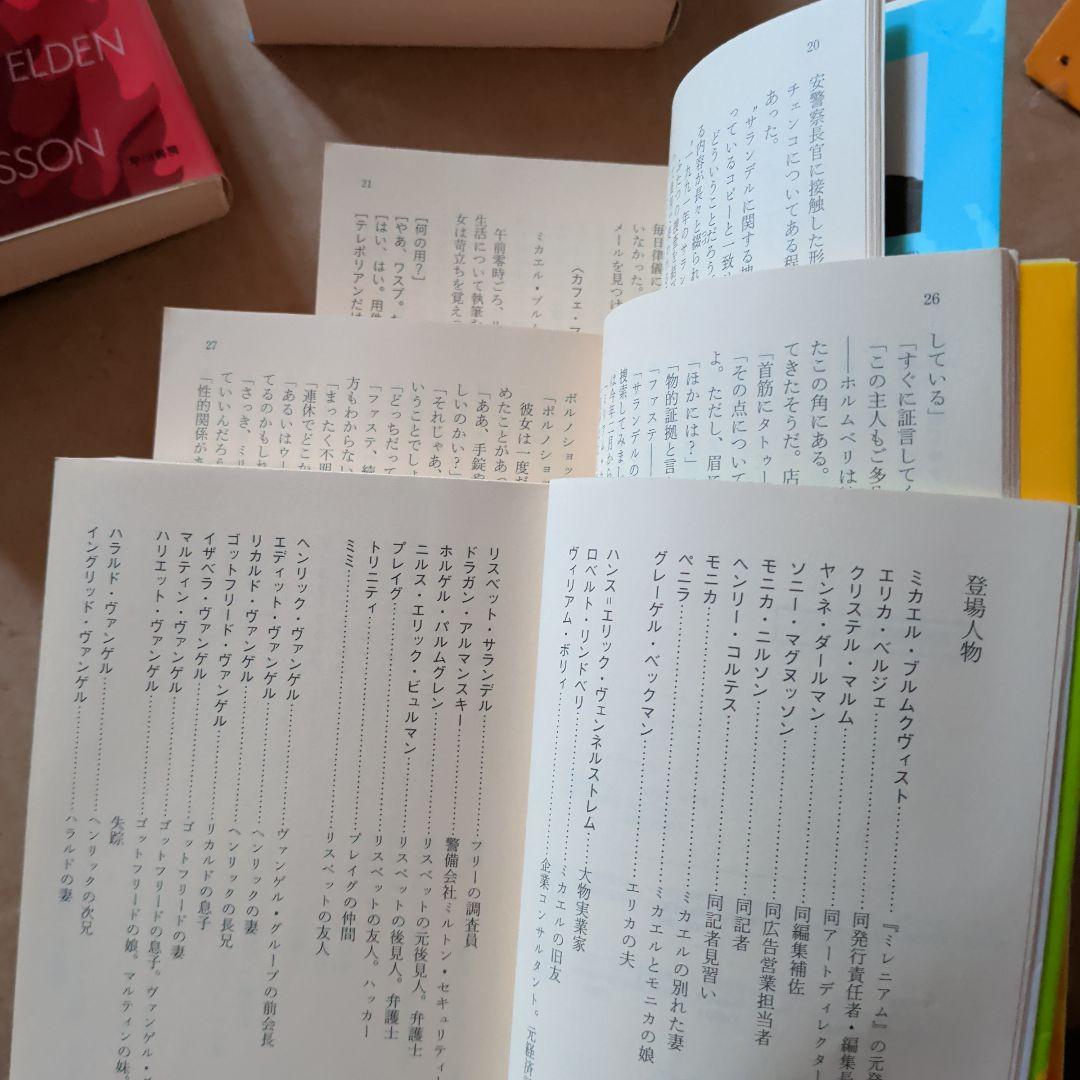 ELDEN
SSON
早川書房
20
安警察長官に接触した形
チェンコについてある程
あった。
“サランデルに関する捜
っているコピーと一致
どういうことだろう。
る内容が長々と綴られ
21
毎日律儀に
いなかった。
メールを見つけ
〈カフェ・
ミカエル・ブル
午前零時ごろ、リ
生活について執筆
女は苛立ちを覚え
［何の用？］
［やあ、ワスプ。
［はい、はい。用件
［テレボリアンだけ
26
している」
「すぐに証言して
「この主人もご多
――ホルムベリは
たこの角にある。
てきたそうだ。店
「首筋にタトゥー
「その点について
よ。ただし、眉に
「ほかには？」
「物的証拠と言
「ファステ――
「サランデルの
捜索してみまし
は今年二月から
27
ポルノショッ
「ポルノショ
彼女は一度だ
めたことがあっ
「ああ、手錠や
しいのかい？」
「それじゃあ、
いうことでし
「どっちだって
「ファステ、続
方もわからない
「まったく不明
「連休でどこか
「あるいはウー
てるのかもしれ
「さっき、ミリ
ていいんだろう
「性的関係があ
登場人物
ミカエル・ブルムクヴィスト…………『ミレニアム』の元発
エリカ・ベルジェ…………同発行責任者・編集長
クリステル・マルム…………同アートディレクター
ヤンネ・ダールマン…………同編集補佐
ソニー・マグヌッソン…………同広告営業担当者
モニカ・ニルソン…………同記者
ヘンリー・コルテス…………同記者見習い
モニカ…………ミカエルの別れた妻
ペニラ…………ミカエルとモニカの娘
グレーゲル・ベックマン…………エリカの夫
ハンス＝エリック・ヴェンネルストレム……大物実業家
ロベルト・リンドベリ…………ミカエルの旧友
ヴィリアム・ボリィ…………企業コンサルタント。元経済
リスベット・サランデル…………フリーの調査員
ドラガン・アルマンスキー…………警備会社ミルトン・セキュリティ
ホルゲル・パルムグレン…………リスベットの元後見人。弁護士
ニルス・エリック・ビュルマン…………リスベットの後見人。弁護士
プレイグ…………リスベットの友人。ハッカー
トリニティ…………プレイグの仲間
ミミ…………リスベットの友人
ヘンリック・ヴァンゲル…………ヴァンゲル・グループの前会長
エディット・ヴァンゲル…………ヘンリックの妻
リカルド・ヴァンゲル…………ヘンリックの長兄
ゴットフリード・ヴァンゲル…………リカルドの息子
イザベラ・ヴァンゲル…………ゴットフリードの妻
マルティン・ヴァンゲル…………ゴットフリードの息子。ヴァンゲル・
ハリエット・ヴァンゲル…………ゴットフリードの娘。マルティンの妹。
失踪
ハラルド・ヴァンゲル…………ヘンリックの次兄
イングリッド・ヴァンゲル…………ハラルドの妻